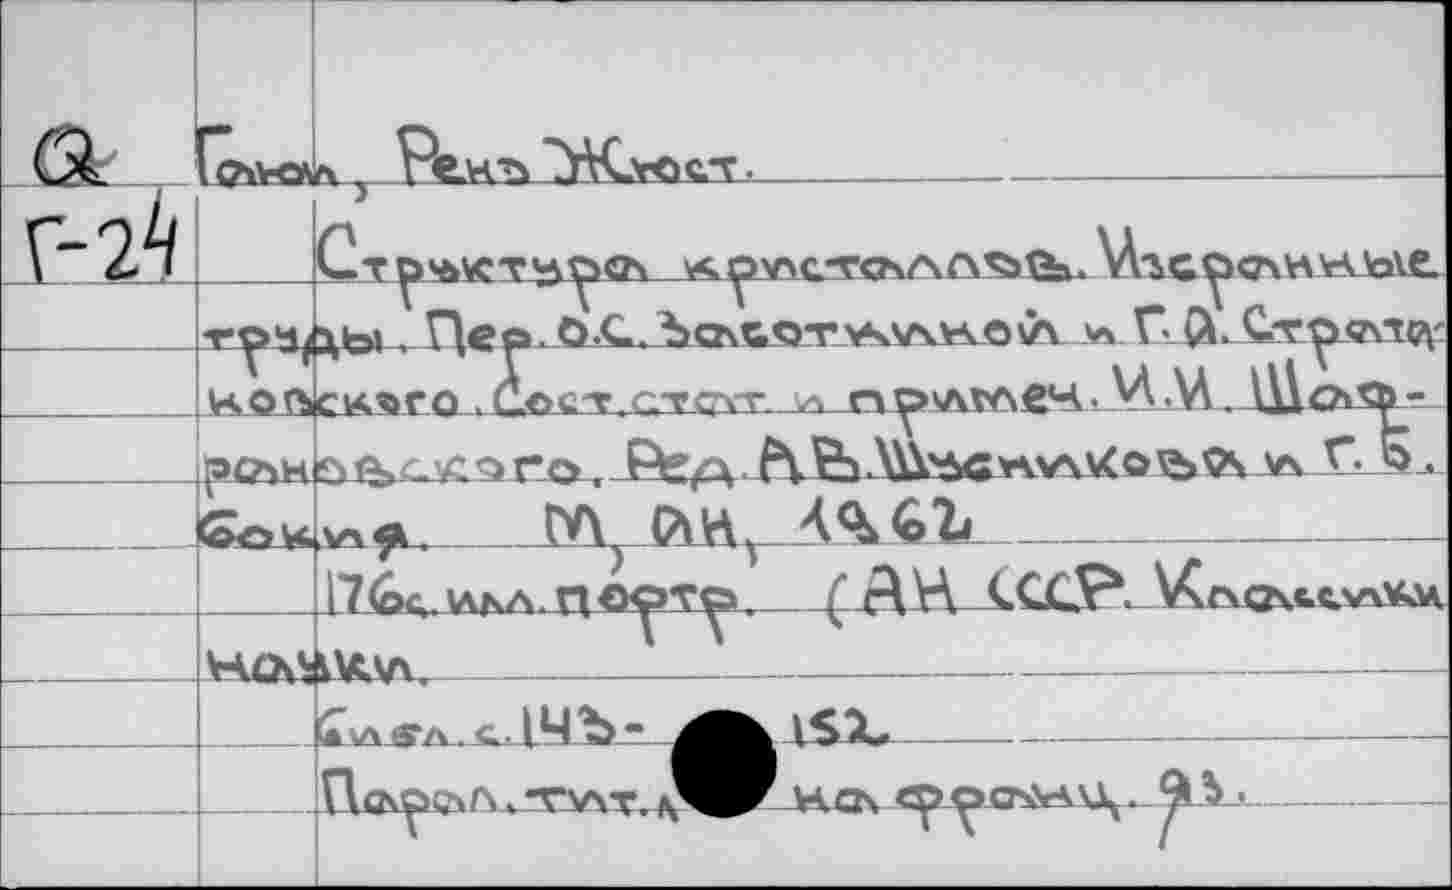 Q Гаюи, Рене Жюст.
Г-24 Структура кристаллов. Избранные
труды. Пер. О.С. Заботкиной и Г.А. Страта-
новского. Сост. стат. и примеч. И.И. Шафра-
рановского. Ред. А.В. Шубникова и Г.Б.
Бокия. М, АН, 1962
176с. илл. портр. (АН СССР. Классики
науки.
Библ. с. 143-152
Парал. тит. л на франц. яз.